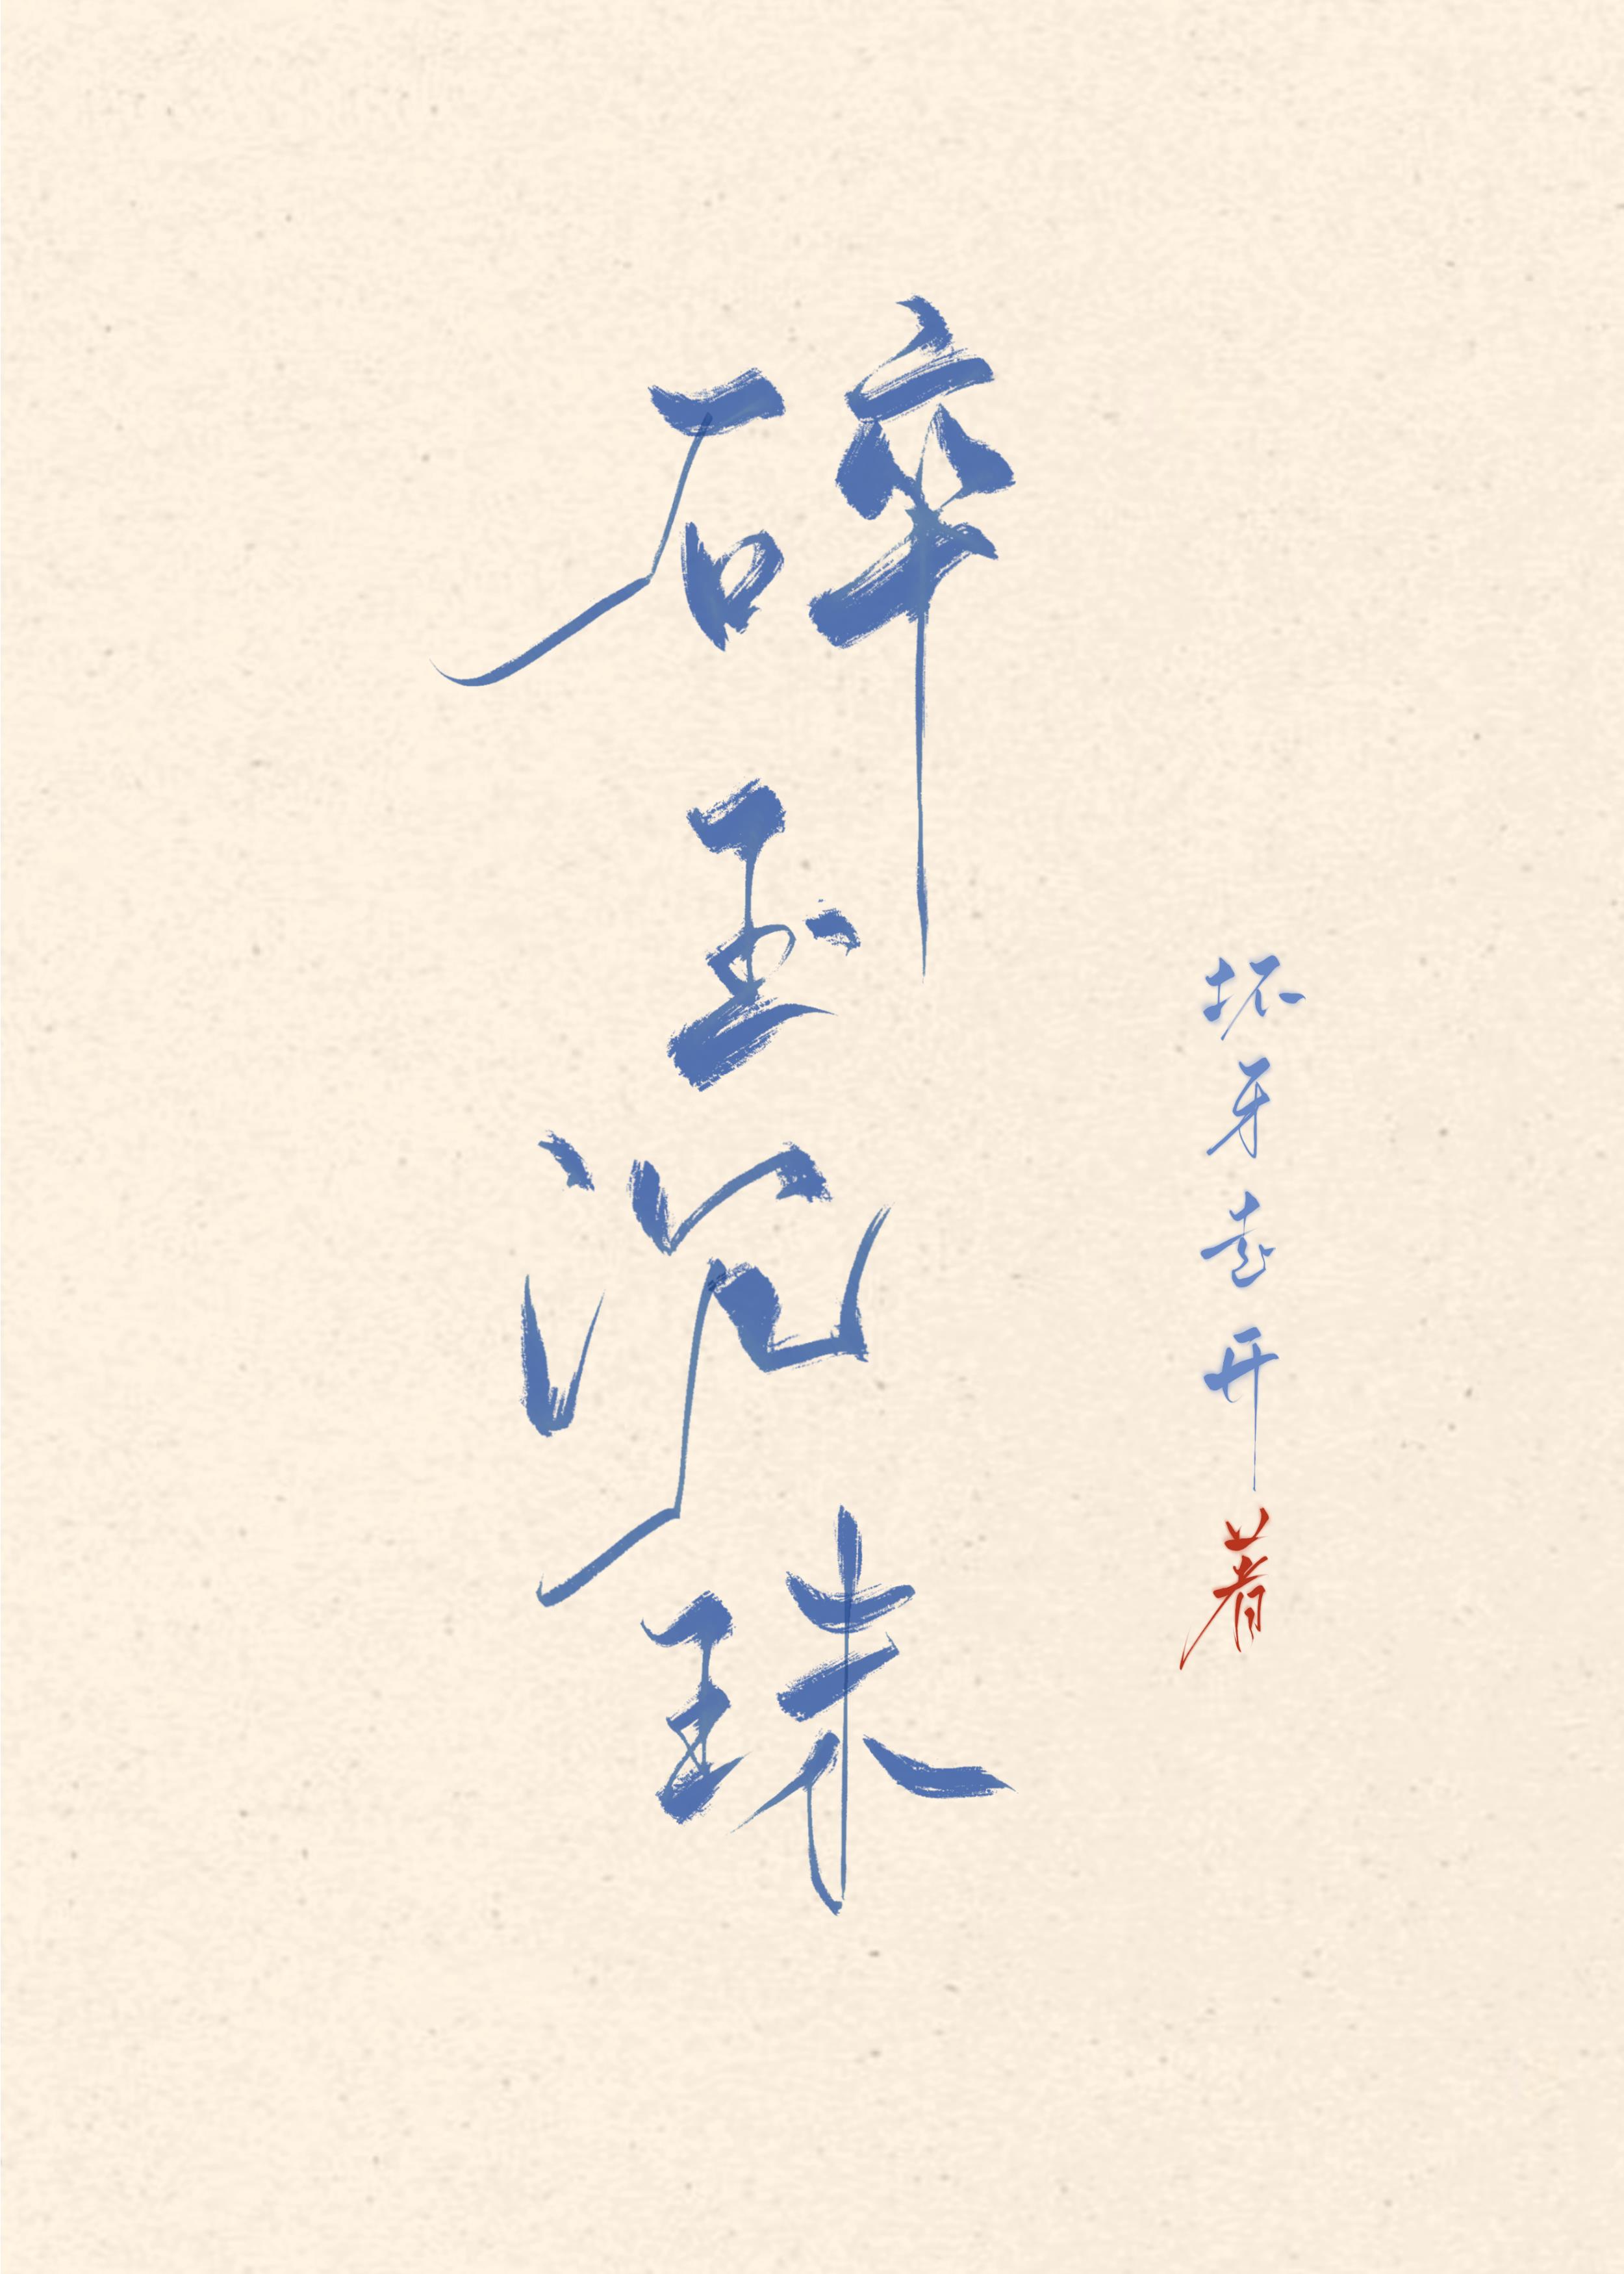 碎玉沉珠
坏牙走开著